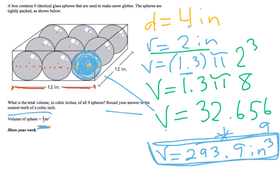 A box contains 9 identical glass spheres that are used to make snow globes. The spheres are
tightly packed, as shown below.
12 in.
12 in.
What is the total volume, in cubic inches, of all 9 spheres? Round your answer to the
nearest tenth of a cubic inch.
Volume of sphere = 4/3 πr³
Show your work.
d = 4 in
r = 2 in
V = (1.3) π 2³
V = 1.3 π 8
V = 32.656
* 9
V = 293.9 in³